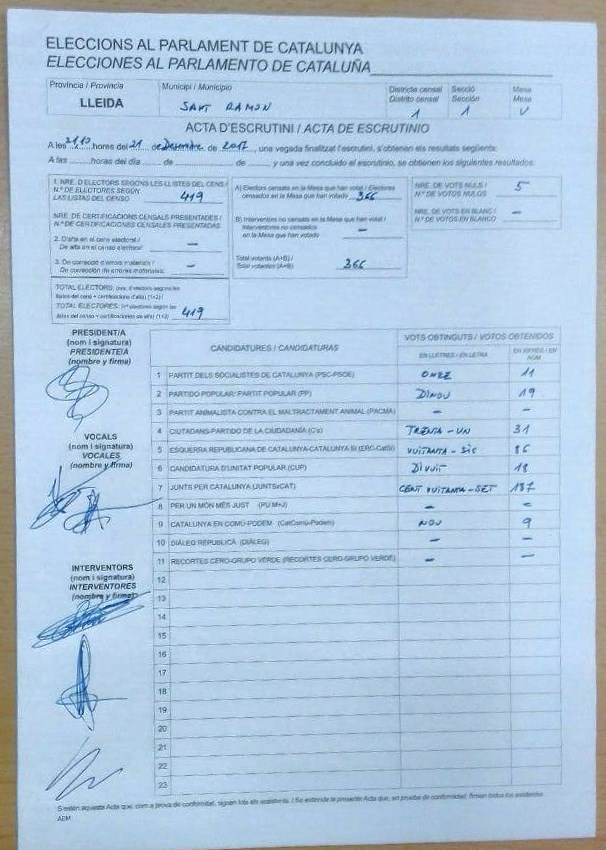 ELECCIONS AL PARLAMENT DE CATALUNYA
ELECCIONES AL PARLAMENTO DE CATALUÑA
Província / Provincia
LLEIDA
Municipi / Municipio
SANT RAMON
Districte censal
Distrito censal
1
Secció
Sección
1
Mesa
Mesa
U
ACTA D'ESCRUTINI / ACTA DE ESCRUTINIO
A les 21'10 hores del 21 de Desembre de 2017, una vegada finalitzat l'escrutini, s'obtenen els resultats següents:
A las ......horas del día ...... de ...... de ......, y una vez concluido el escrutinio, se obtienen los siguientes resultados:
1. NRE. D'ELECTORS SEGONS LES LLISTES DEL CENS /
N.º DE ELECTORES SEGÚN
LAS LISTAS DEL CENSO 419
NRE. DE CERTIFICACIONS CENSALS PRESENTADES /
N.º DE CERTIFICACIONES CENSALES PRESENTADAS
2. D'alta en el cens electoral /
De alta en el censo electoral —
3. De correcció d'errors materials /
De corrección de errores materiales —
TOTAL ELECTORS: (nre. d'electors segons les
llistes del cens + certificacions d'alta) (1+2) /
TOTAL ELECTORES: (n.º electores según las
listas del censo + certificaciones de alta) (1+2) 419
A) Electors censats en la Mesa que han votat / Electores
censados en la Mesa que han votado 366
B) Interventors no censats en la Mesa que han votat /
Interventores no censados
en la Mesa que han votado —
Total votants (A+B) /
Total votantes (A+B) 366
NRE. DE VOTS NULS /
N.º DE VOTOS NULOS 5
NRE. DE VOTS EN BLANC /
N.º DE VOTOS EN BLANCO —
PRESIDENT/A
(nom i signatura)
PRESIDENTE/A
(nombre y firma)
VOCALS
(nom i signatura)
VOCALES
(nombre y firma)
INTERVENTORS
(nom i signatura)
INTERVENTORES
(nombre y firma)
CANDIDATURES / CANDIDATURAS
VOTS OBTINGUTS / VOTOS OBTENIDOS
EN LLETRES / EN LETRA
EN XIFRES / EN NÚM.
1 PARTIT DELS SOCIALISTES DE CATALUNYA (PSC-PSOE) ONZE 11
2 PARTIDO POPULAR/ PARTIT POPULAR (PP) DINOU 19
3 PARTIT ANIMALISTA CONTRA EL MALTRACTAMENT ANIMAL (PACMA) — —
4 CIUTADANS-PARTIDO DE LA CIUDADANÍA (C's) TRENTA-UN 31
5 ESQUERRA REPUBLICANA DE CATALUNYA-CATALUNYA SÍ (ERC-CatSí) VUITANTA-SIS 86
6 CANDIDATURA D'UNITAT POPULAR (CUP) DIVUIT 18
7 JUNTS PER CATALUNYA (JUNTSxCAT) CENT VUITANTA-SET 187
8 PER UN MÓN MÉS JUST (PUM+J) — —
9 CATALUNYA EN COMÚ-PODEM (CatComú-Podem) NOU 9
10 DIÁLEG REPUBLICÀ (DIÀLEG) — —
11 RECORTES CERO-GRUPO VERDE (RECORTES CERO-GRUPO VERDE) — —
12
13
14
15
16
17
18
19
20
21
22
23
S'estén aquesta Acta que, com a prova de conformitat, signen tots els assistents. / Se extiende la presente Acta que, en prueba de conformidad, firman todos los asistentes
AEM